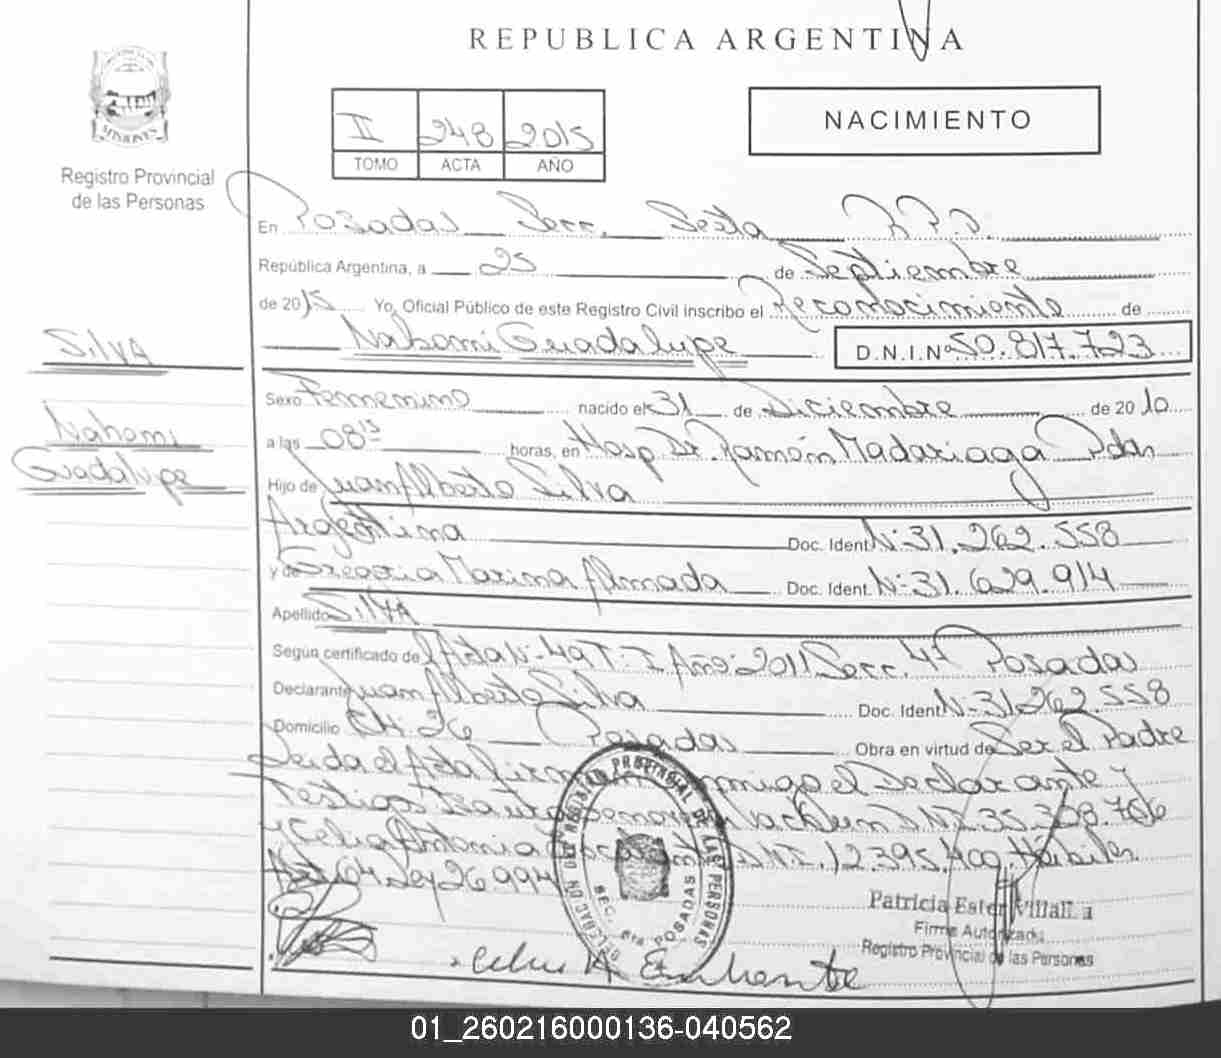 REPUBLICA ARGENTINA
MISIONES
Registro Provincial
de las Personas
II 248 2015
TOMO ACTA AÑO
NACIMIENTO
En Posadas Secc. Sexta R.P.P.
República Argentina, a 25 de Septiembre
de 2015 Yo, Oficial Público de este Registro Civil inscribo el Reconocimiento de
Nahomi Guadalupe D.N.I.Nº 50.817.723
SILVA
Nahomi
Guadalupe
Sexo Femenino nacido el 31 de Diciembre de 2010
a las 08 15 horas, en Hosp Dr. Ramón Madariaga Pdas
Hijo de Juan Alberto Silva
Argentina Doc. Ident. Nº 31.262.558
y de Gregoria Marina Almada Doc. Ident. Nº 31.629.914
Apellido SILVA
Según certificado de Acta Nº 49 T-I Año 2011 Secc. 4ª Posadas
Declarante Juan Alberto Silva Doc. Ident. Nº 31.262.558
Domicilio Ch: 26 Posadas Obra en virtud de Ser el Padre
Leida el Acta firman conmigo el Declarante y
Testigos DNI 35.328.766
y Celia Antonia D.N.I. 12.395.400. Hábiles
Art 64 Ley 26.994
DELEGACION DEL REGISTRO PROVINCIAL DE LAS PERSONAS
SEC. 6ta POSADAS
Patricia Ester
Firma Autorizada
Registro Provincial de las Personas
01_260216000136-040562